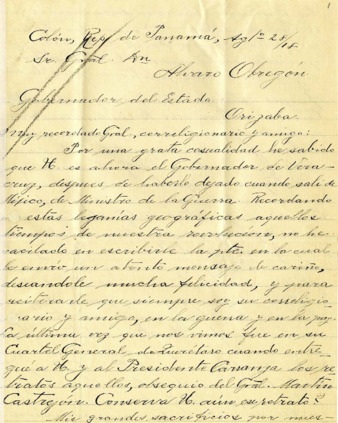 1
Colón, Rep. de Panamá, Agto 28/18.
Sr. Gral. Dn
Alvaro Obregón
Gobernador del Estado.
Orizaba.
Muy recordado Gral, correligionario y amigo:
Por una grata casualidad he sabido
que U. es ahora el Gobernador de Vera-
cruz, despues de haberlo dejado cuando salí de
Méjico, de Ministro de la Guerra. Recordando
en estas lejanías geográficas aquellos
tiempos de nuestra revolucion, no he
vacilado en escribirle la pte. en la cual
le envío un atento mensaje de cariño,
deseandole mucha felicidad, y para
reiterarle que siempre soy su correligio-
nario y amigo, en la guerra y en la paz.
La última vez que nos vimos fue en su
Cuartel General de Querétaro cuando entre-
gue a U. y al Presidente Carranza los re-
tratos aquellos, obsequio del Gral. Martin
Castrejón. Conserva U. aún ese retrato?
Mis grandes sacrificios por nues-